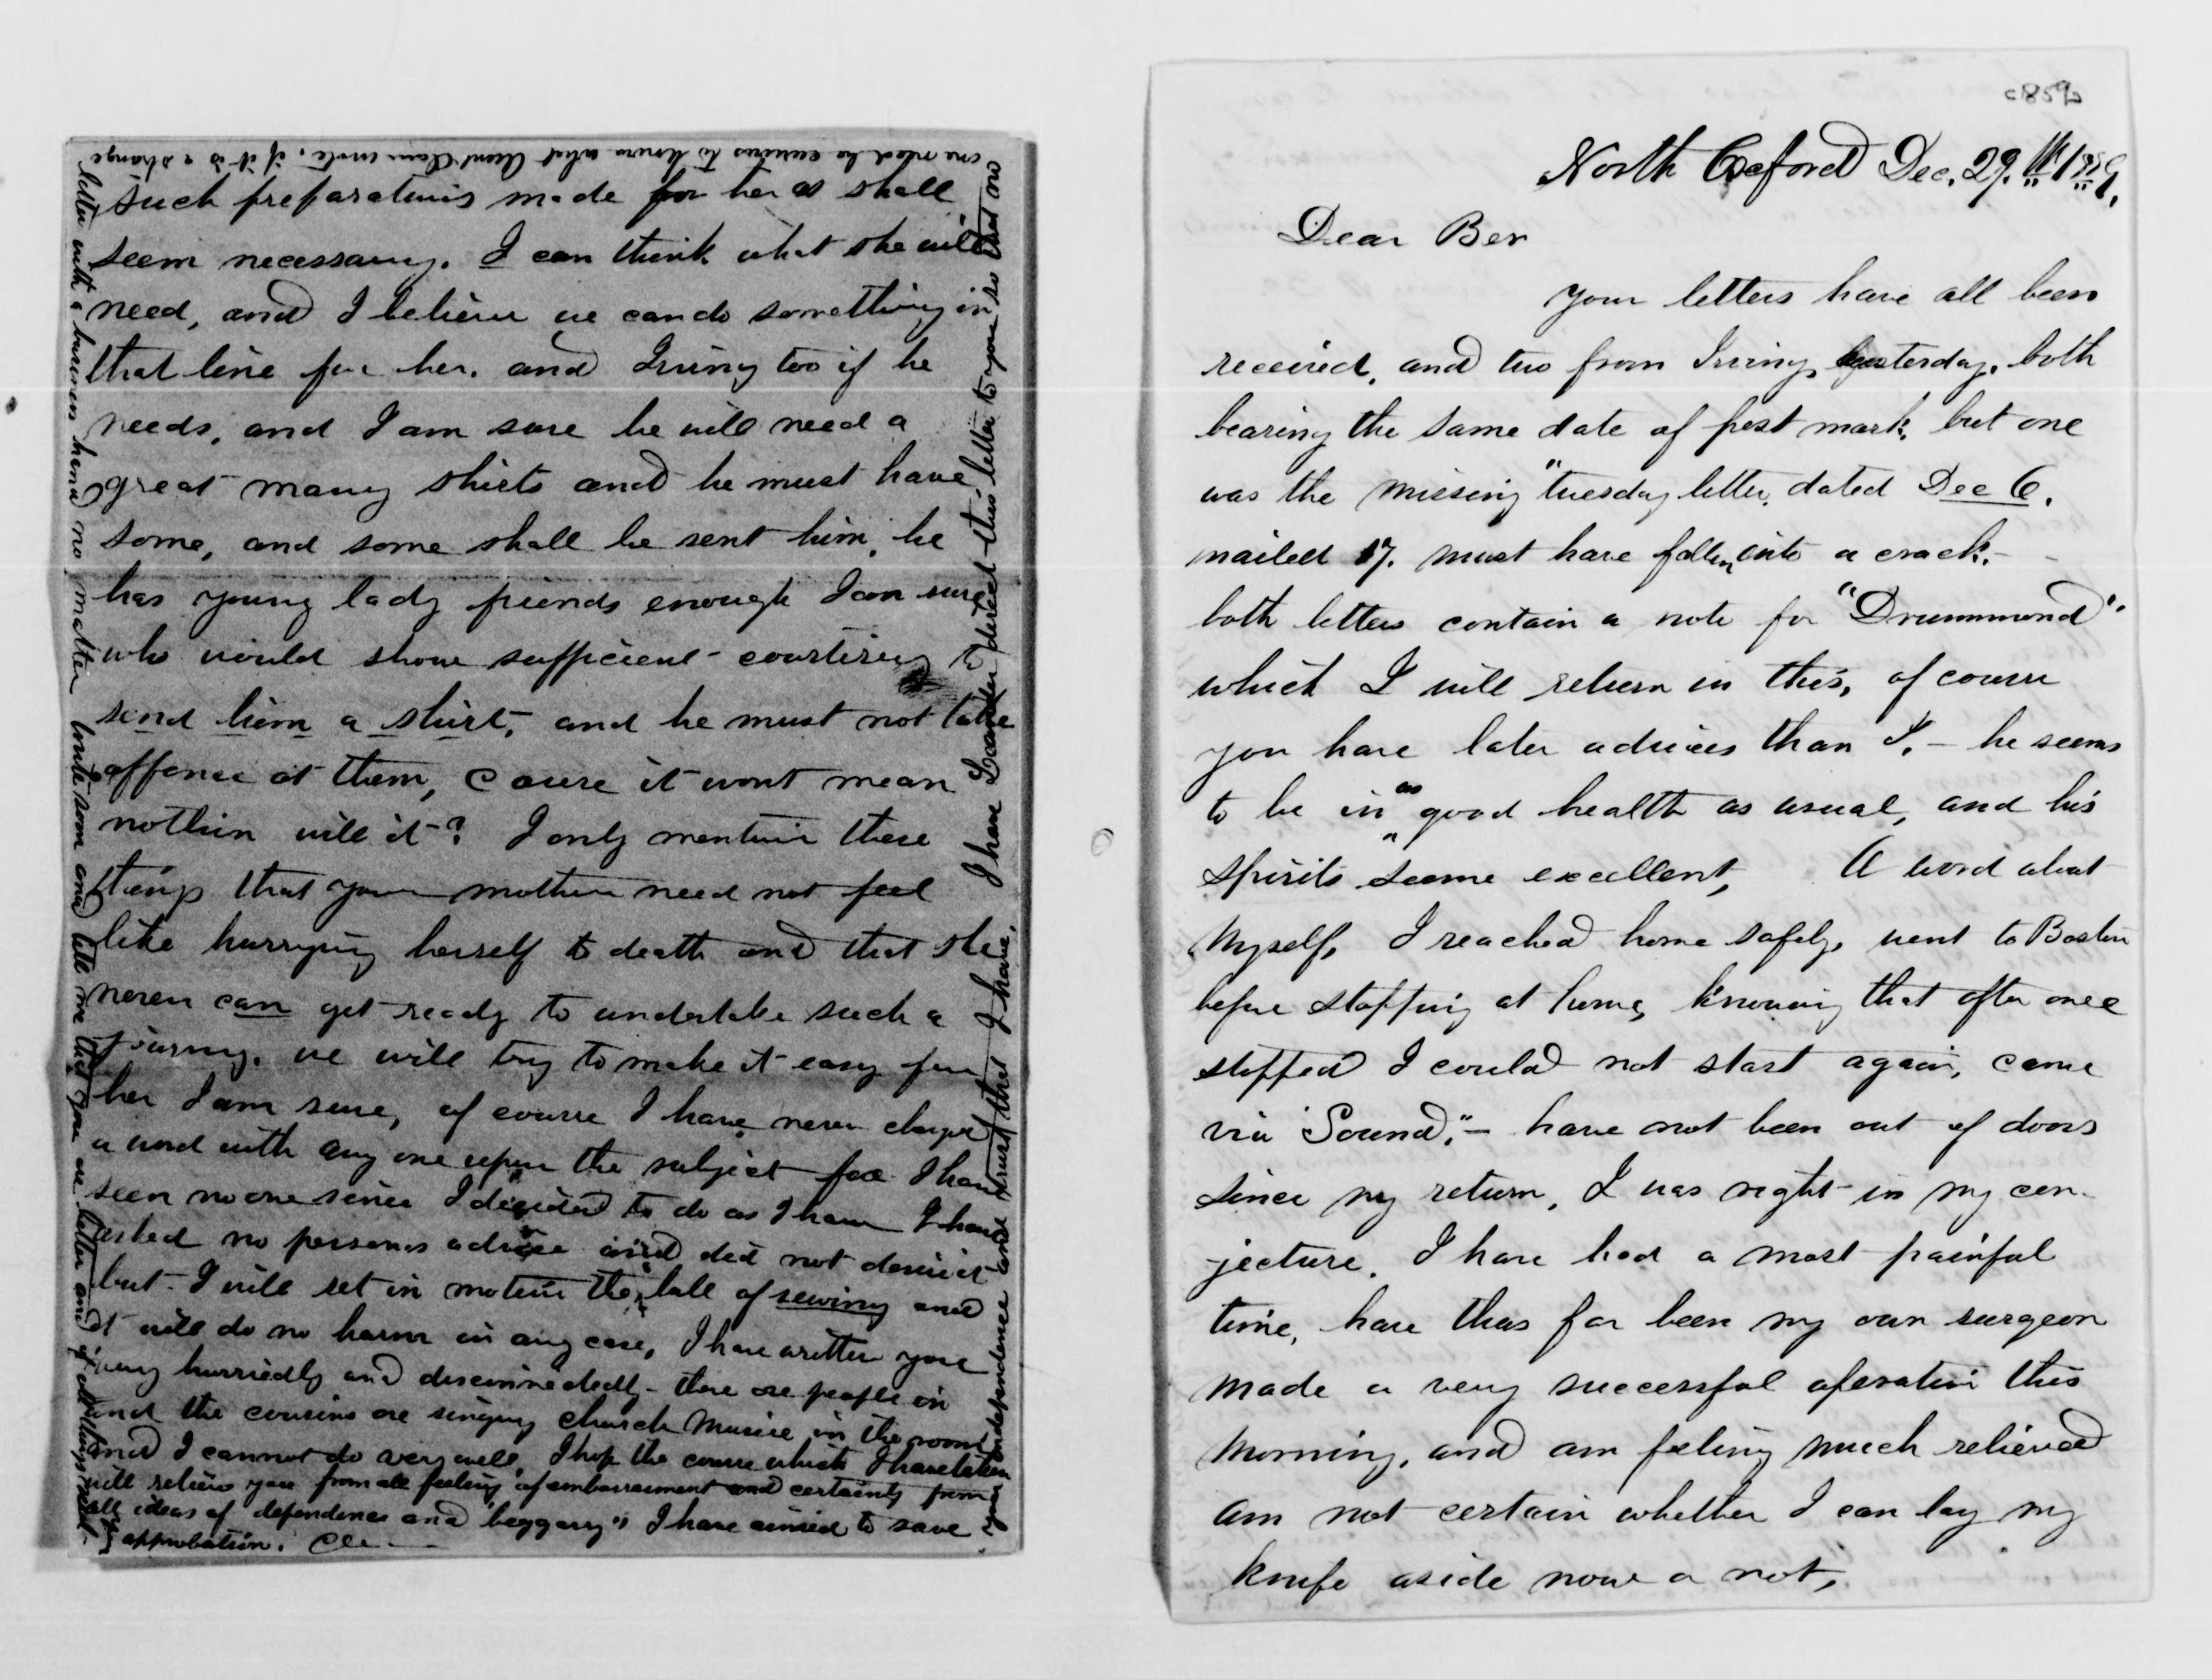 such preparations made for her as shall
seem necessary. I can think what she will
need, and I believe we can do something in
that line for her. and Irving too if he
needs, and I am sure he will need a
great many shirts and he must have
some, and some shall be sent him, he
has young lady friends enough I am sure
who would show sufficient courtesy to
send him a shirt, and he must not take
offence at them, cause it wont mean
nothin will it? I only mention these
things that your mother need not feel
like hurrying herself to death and that she
never can get ready to undertake such a
journey. we will try to make it easy for
her I am sure, of course I have never
a word with any one upon the subject for I have
seen no one since I decided to do as I have I have
asked no persons advice and did not desire it
but I will set in motion the ball of sewing and
it will do no harm in any case, I have written you
very hurriedly and disconnectedly - there are people in
and the cousins are singing church music in the room
and I cannot do very well, I hope the course which I have taken
will relieve you from all feeling of embarrassment and certainly from
all ideas of dependence and "beggary" I have aimed to save
your independence and trust that I have. I have Leander direct this letter to you so that no
one need be curious to know what Aunt Clara wrote, if it is a strange
letter with a business hand no matter. write soon and tell me that you are better and of all things need
my approbation. Cla
c 859
North Oxford Dec. 29.th 1859.
Dear Ber
Your letters have all been
received, and two from Irving yesterday. both
bearing the same date of post mark, but one
was the missing "tuesday letter, dated Dec 6.
mailed 17. must have fallen into a crack. -
both letters contain a note for "Drummond"
which I will return in this, of course
you have later advices than I. - he seems
to be in as good health as usual, and his
spirits seems excellent, A word about
Myself, I reached home safely, went to Boston
before stopping at home, knowing that after once
stopped I could not start again, came
via "Sound," - have not been out of doors
since my return, I was right in my con-
jecture. I have had a most painful
time, have thus far been my own surgeon
made a very successful operation this
morning, and am feeling much relieved
am not certain whether I can lay my
knife aside now or not,